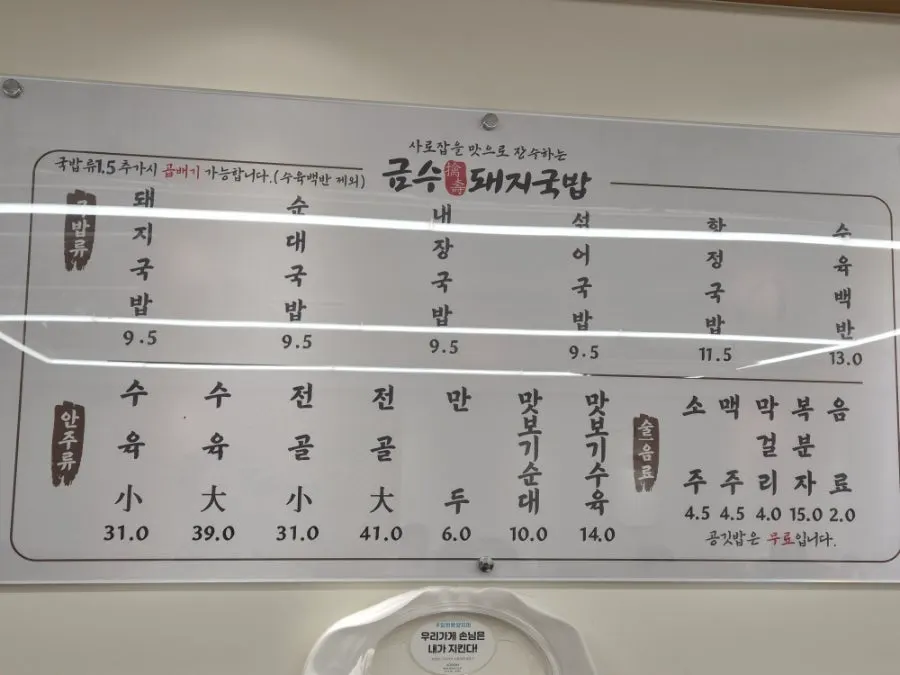 사로잡을 맛으로 장수하는
금수 擒壽 돼지국밥
국밥류 1.5 추가시 곱배기 가능합니다. (수육백반 제외)
국밥류
돼지국밥 9.5
순대국밥 9.5
내장국밥 9.5
섞어국밥 9.5
한정국밥 11.5
수육백반 13.0
안주류
수육 小 31.0
수육 大 39.0
전골 小 31.0
전골 大 41.0
만두 6.0
맛보기순대 10.0
맛보기수육 14.0
술/음료
소주 4.5
맥주 4.5
막걸리 4.0
복분자 15.0
음료 2.0
공깃밥은 무료입니다.
우리가게 손님은
내가 지킨다!